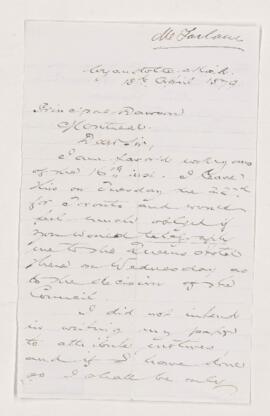 McFarlane
Wyandotte, Mich.
18th April 1873
Principal Dawson
Montreal
Dear Sir,
I am favor'd with yours
of the 16th inst. I leave
this on Tuesday the 22nd
for Toronto and would
feel much obliged if
you would telegraph
me to the Queens Hotel
there on Wednesday as
to the decision of the
Council.
I did not intend
in writing my paper
to attribute motives
and if I have done
so I shall be only